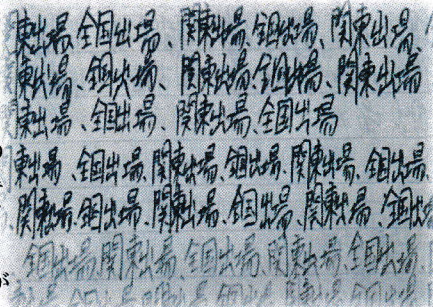 東出場、全国出場、関東出場、全国出場、関東出場、
東出場、全国出場、関東出場、全国出場、関東出場
東出場、全国出場、関東出場、全国出場
東出場、全国出場、関東出場、全国出場、関東出場、全国出場、
関東出場、全国出場、関東出場、全国出場、関東出場、全国出
全国出場、関東出場、全国出場、関東出場、全国出場、
が